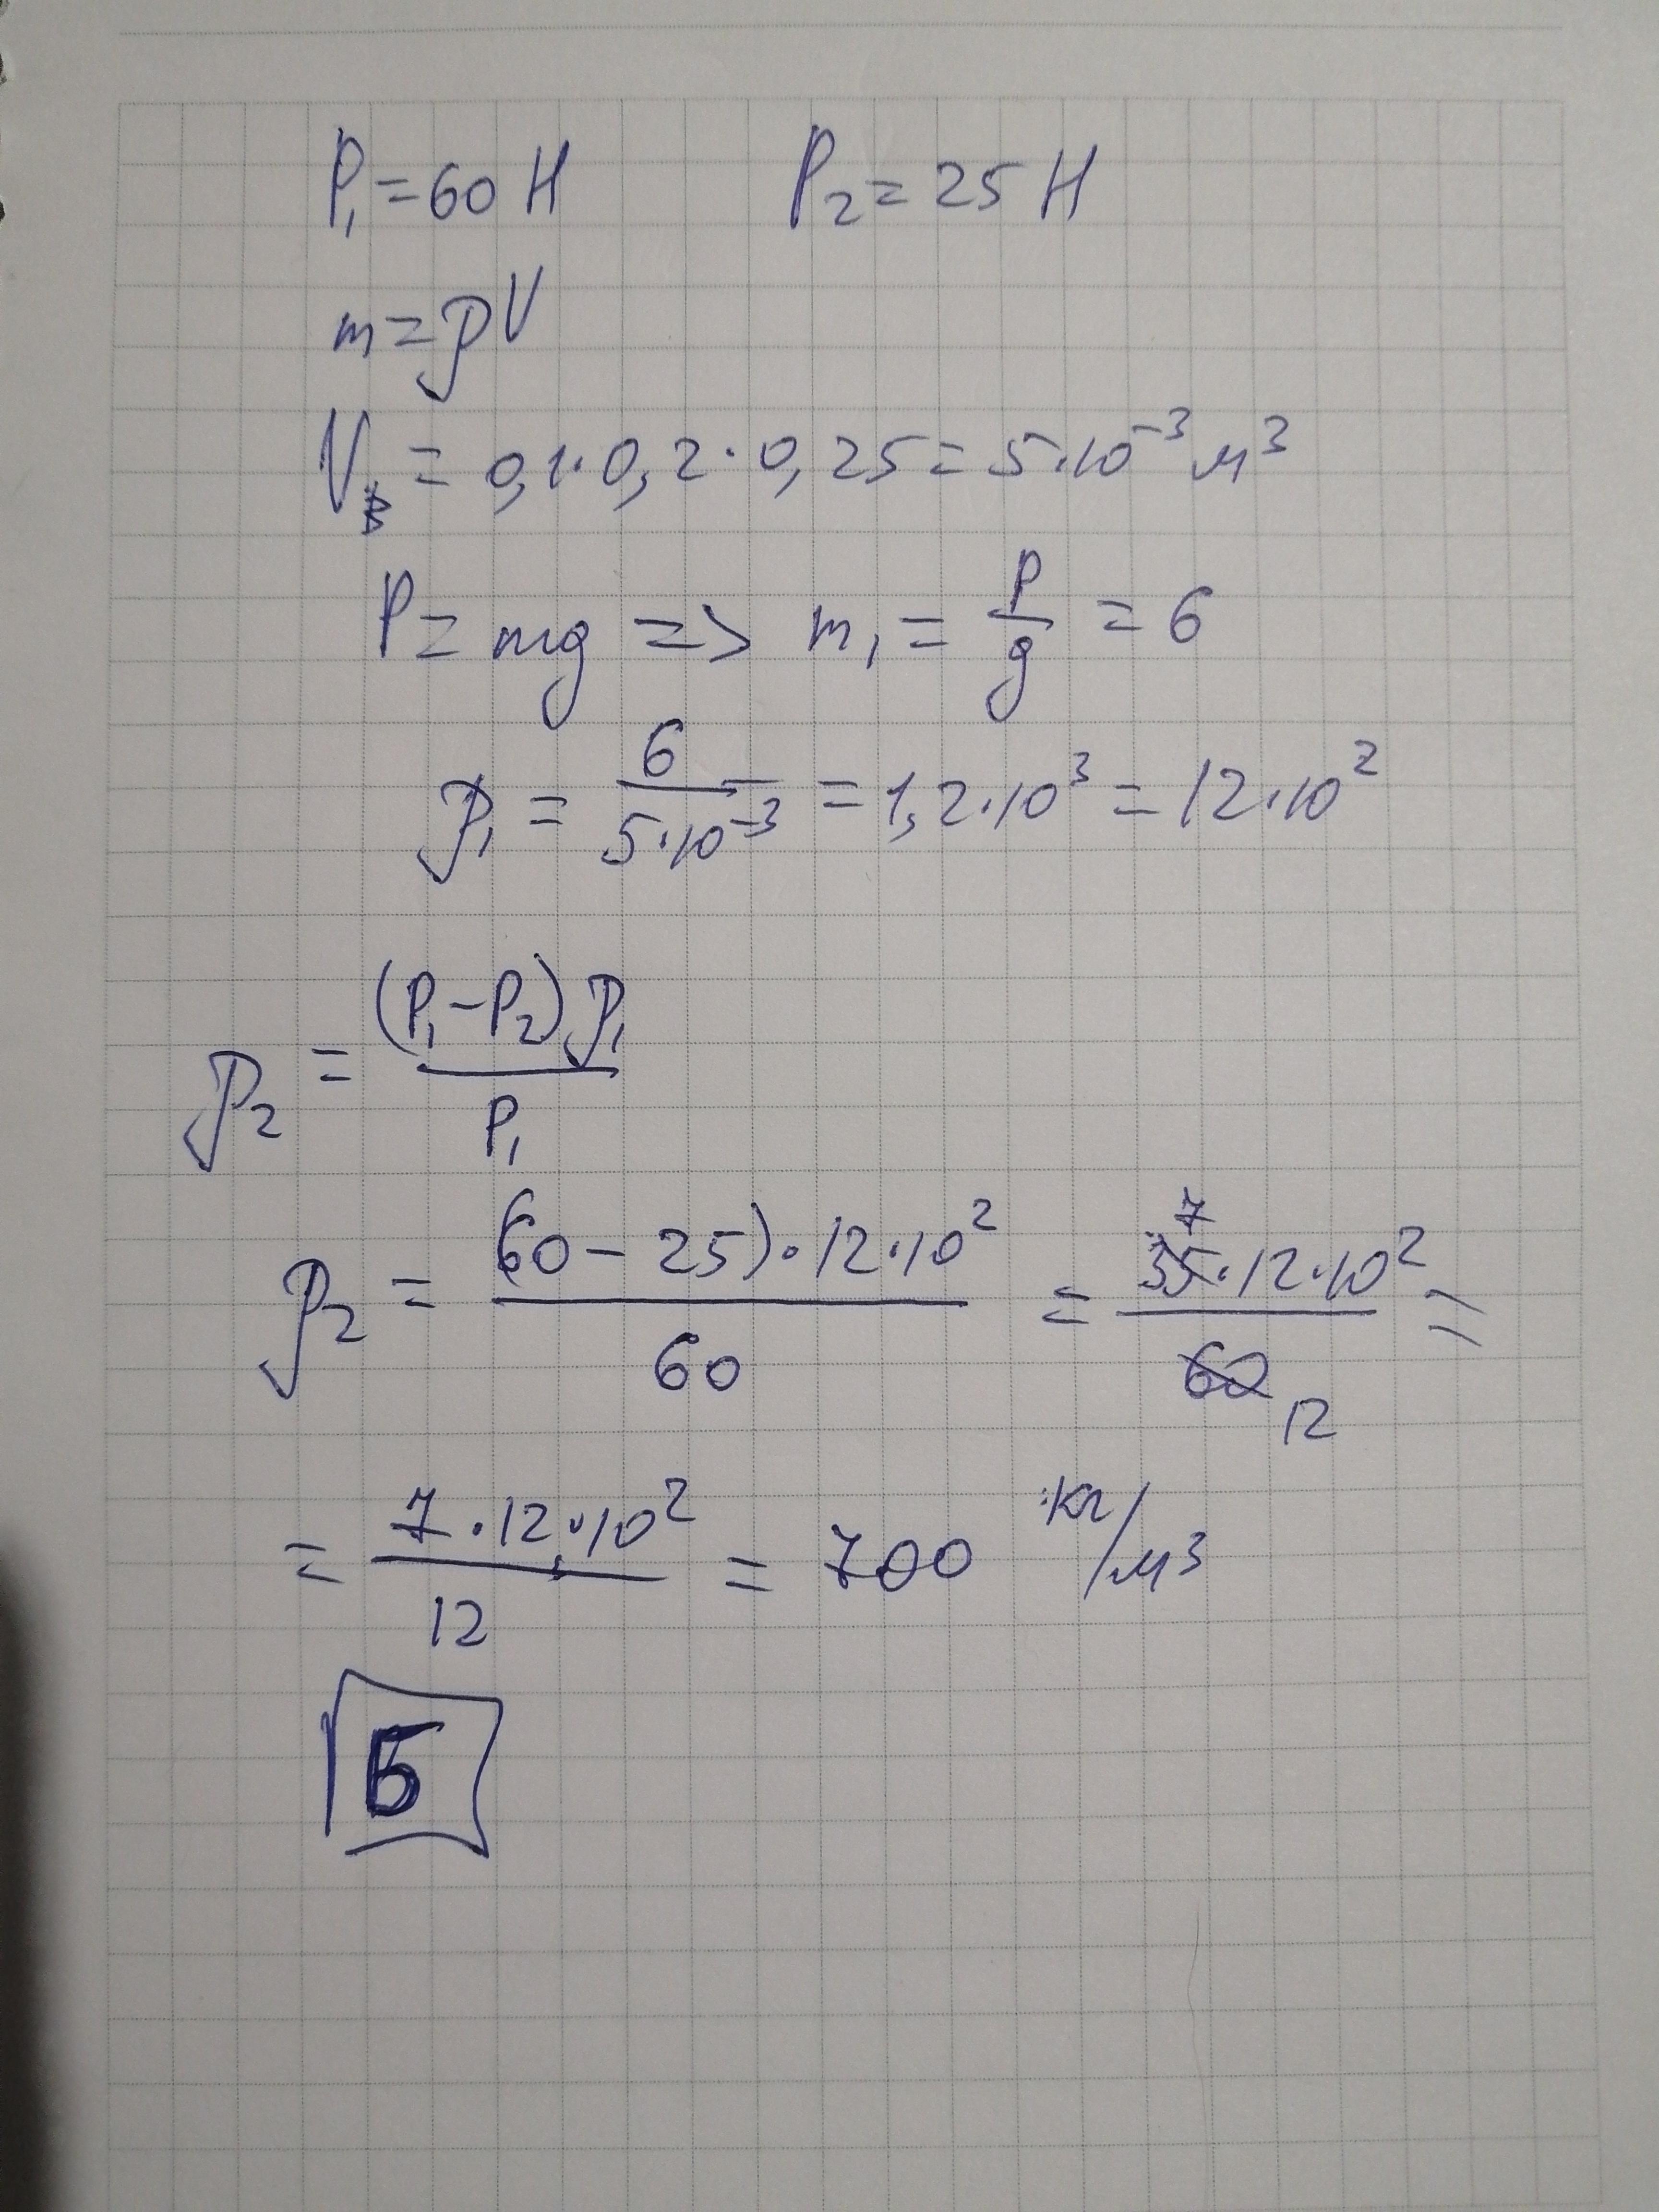 P₁ = 60 Н P₂ = 25 Н
m = ρV
Vв = 0,1·0,2·0,25 = 5·10⁻³ м³
P = mg => m₁ = P/g = 6
ρ₁ = 6/(5·10⁻³) = 1,2·10³ = 12·10²
ρ₂ = (P₁ − P₂)ρ₁/P₁
ρ₂ = (60 − 25)·12·10²/60 = 35·12·10²/60 =
7
12
= 7·12·10²/12 = 700 кг/м³
Б